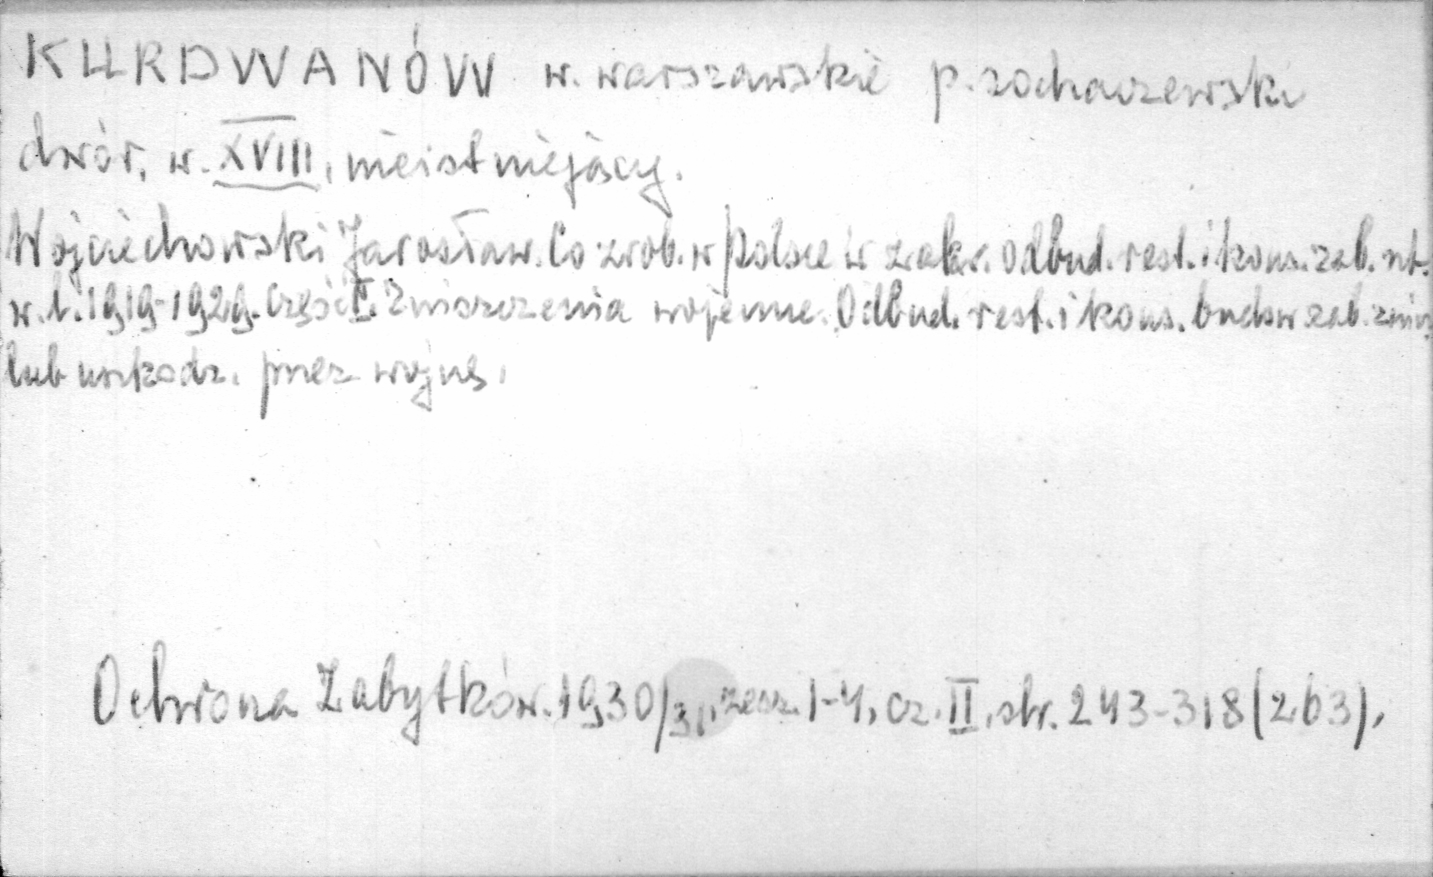 KURDWANÓW w. warszawskie p. sochaczewski
dwór, w. XVIII, nieistniejący.
Wojciechowski Jarosław. Co zrob. w Polsce w zakr. odbud. rest. i kons. zab. szt.
w l. 1919-1929. Część I. Zniszczenia wojenne. Odbud. rest. i kons. budow zab. znisz
lub uszkodz. przez wojnę.
Ochrona Zabytków. 1930/31, zesz. 1-4, cz. II, str. 243-318 (263),